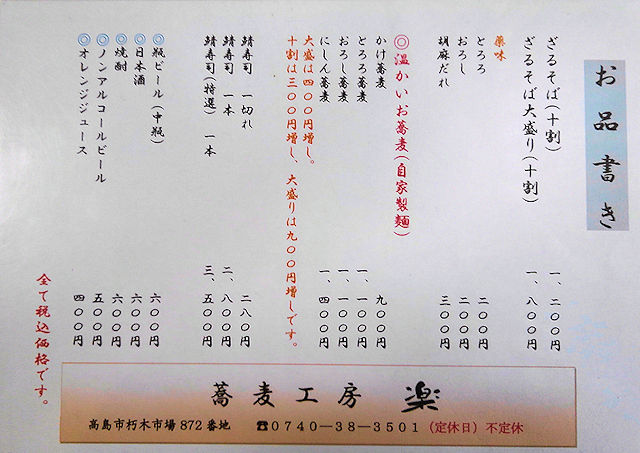 お品書き
ざるそば(十割) 一、二〇〇円
ざるそば大盛り(十割) 一、八〇〇円
薬味
とろろ 二〇〇円
おろし 二〇〇円
胡麻だれ 三〇〇円
◎温かいお蕎麦(自家製麺)
かけ蕎麦 九〇〇円
とろろ蕎麦 一、一〇〇円
おろし蕎麦 一、一〇〇円
にしん蕎麦 一、四〇〇円
大盛は四〇〇円増し。
十割は三〇〇円増し、大盛りは九〇〇円増しです。
鯖寿司 一切れ 二八〇円
鯖寿司 一本 二、八〇〇円
鯖寿司(特選) 一本 三、五〇〇円
◎瓶ビール(中瓶) 六〇〇円
◎日本酒 六〇〇円
◎焼酎 六〇〇円
◎ノンアルコールビール 五〇〇円
◎オレンジジュース 四〇〇円
全て税込価格です。
蕎麦工房 楽
高島市朽木市場872番地 ☎0740-38-3501(定休日)不定休